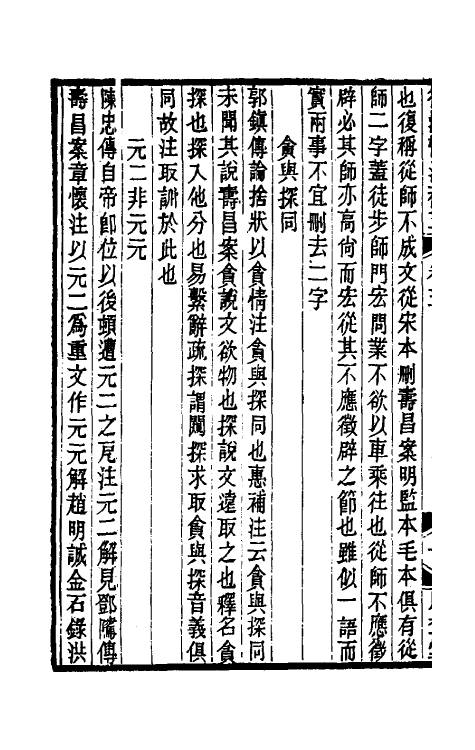 也復稱從師不成文從宋本刪壽昌案明監本毛本俱有從
師二字蓋徒步師門宏問業不欲以車乘往也從師不應徵
辟必其師亦高尙而宏從其不應徵辟之節也雖似一語而
實兩事不宜刪去二字
貪與探同
郭鎭傳論捨狀以貪情注貪與探同也惠補注云貪與探同
未聞其說壽昌案貪說文欲物也探說文遠取之也釋名貪
探也探入他分也易繫辭疏探謂闚探求取貪與探音義俱
同故注取訓於此也
元二非元元
陳忠傳自帝卽位以後頻遭元二之戹注元二解見鄧隲傳
壽昌案章懷注以元二爲重文作元元解趙明誠金石錄洪